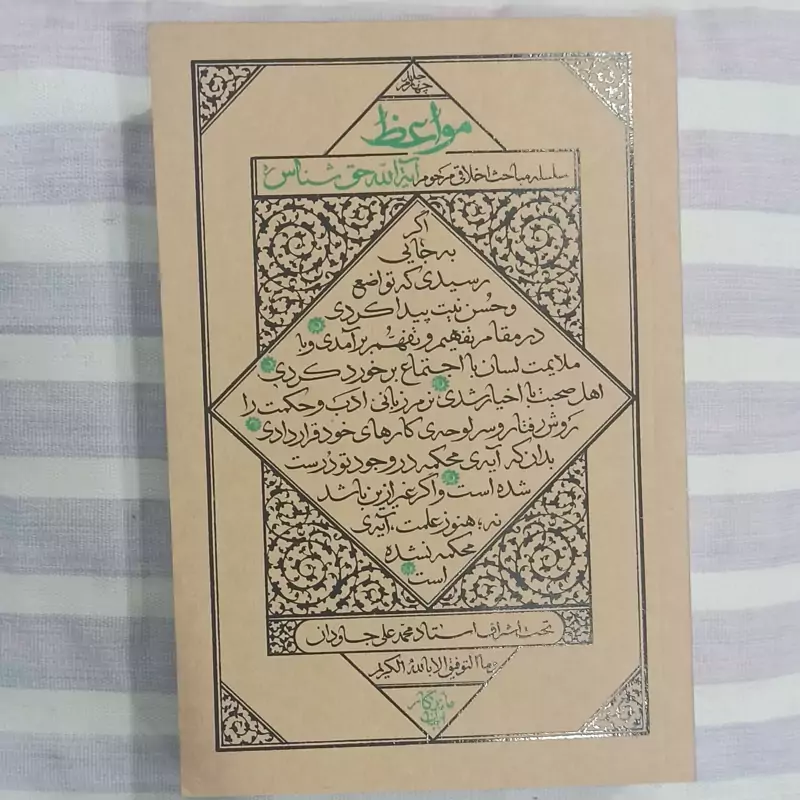 جلد چهارم
مواعظ
سلسله مباحث اخلاقی مرحوم آیة الله حق شناس ره
اگر
به جایی
رسیدی که تواضع
و حُسن نیت پیدا کردی
در مقام تفهیم و تفهّم برآمدی و با
ملایمت لسان با اجتماع برخورد کردی
اهل صحبت با اخیار شدی نرم زبانی ادب و حکمت را
روش رفتار و سرلوحه‌ی کارهای خود قرار دادی
بدان که آیه‌ی محکمه در وجود تو درست
شده است و اگر غیر از این باشد
نه، هنوز علمت، آیه‌ی
محکمه نشده
است
تحت اشراف استاد محمد علی جاودان
و ما التوفیق الا بالله الکریم